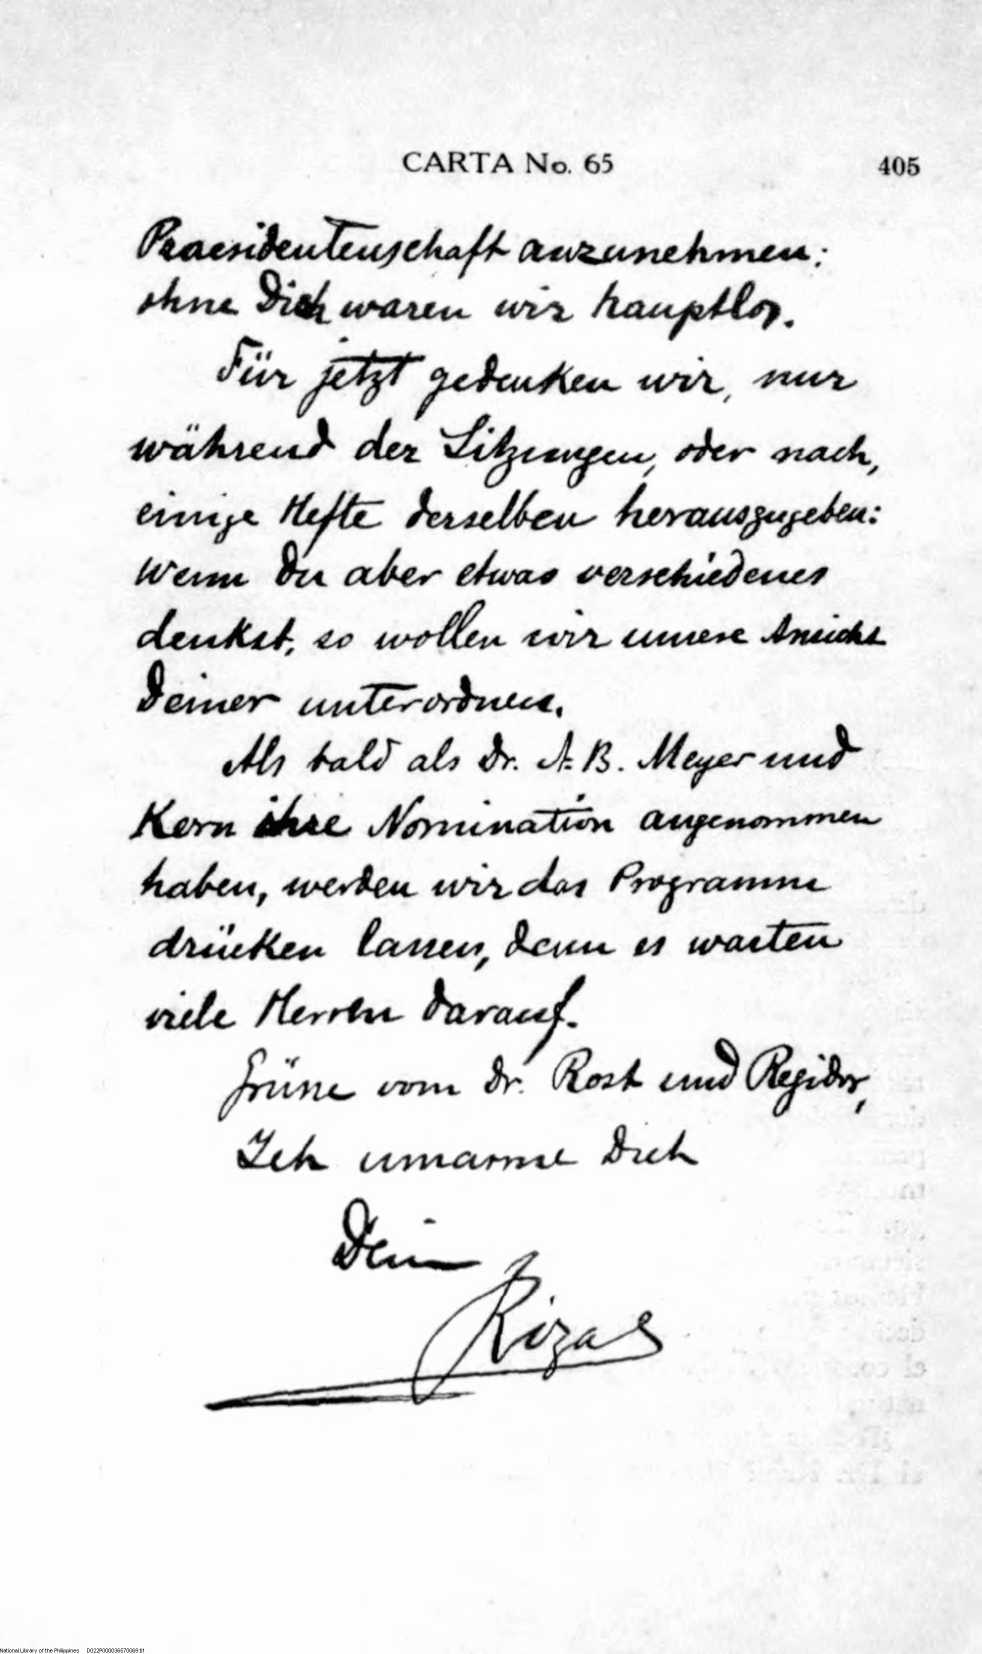 CARTA No. 65 405
Praesidentenschaft anzunehmen:
ohne Dich waren wir hauptlos.
Für jetzt gedenken wir, nur
während der Sitzungen, oder nach,
einige Hefte derselben herauszugeben:
Wenn Du aber etwas verschiedenes
denkst, so wollen wir unsere Ansicht
Deiner unterordnen.
Als bald als Dr. A. B. Meyer und
Kern ihre Nomination angenommen
haben, werden wir das Programm
drücken lassen, denn es warten
viele Herren darauf.
Grüsse vom Dr. Rost und Regidor,
Ich umarme Dich
Dein
Rizal
National Library of the Philippines